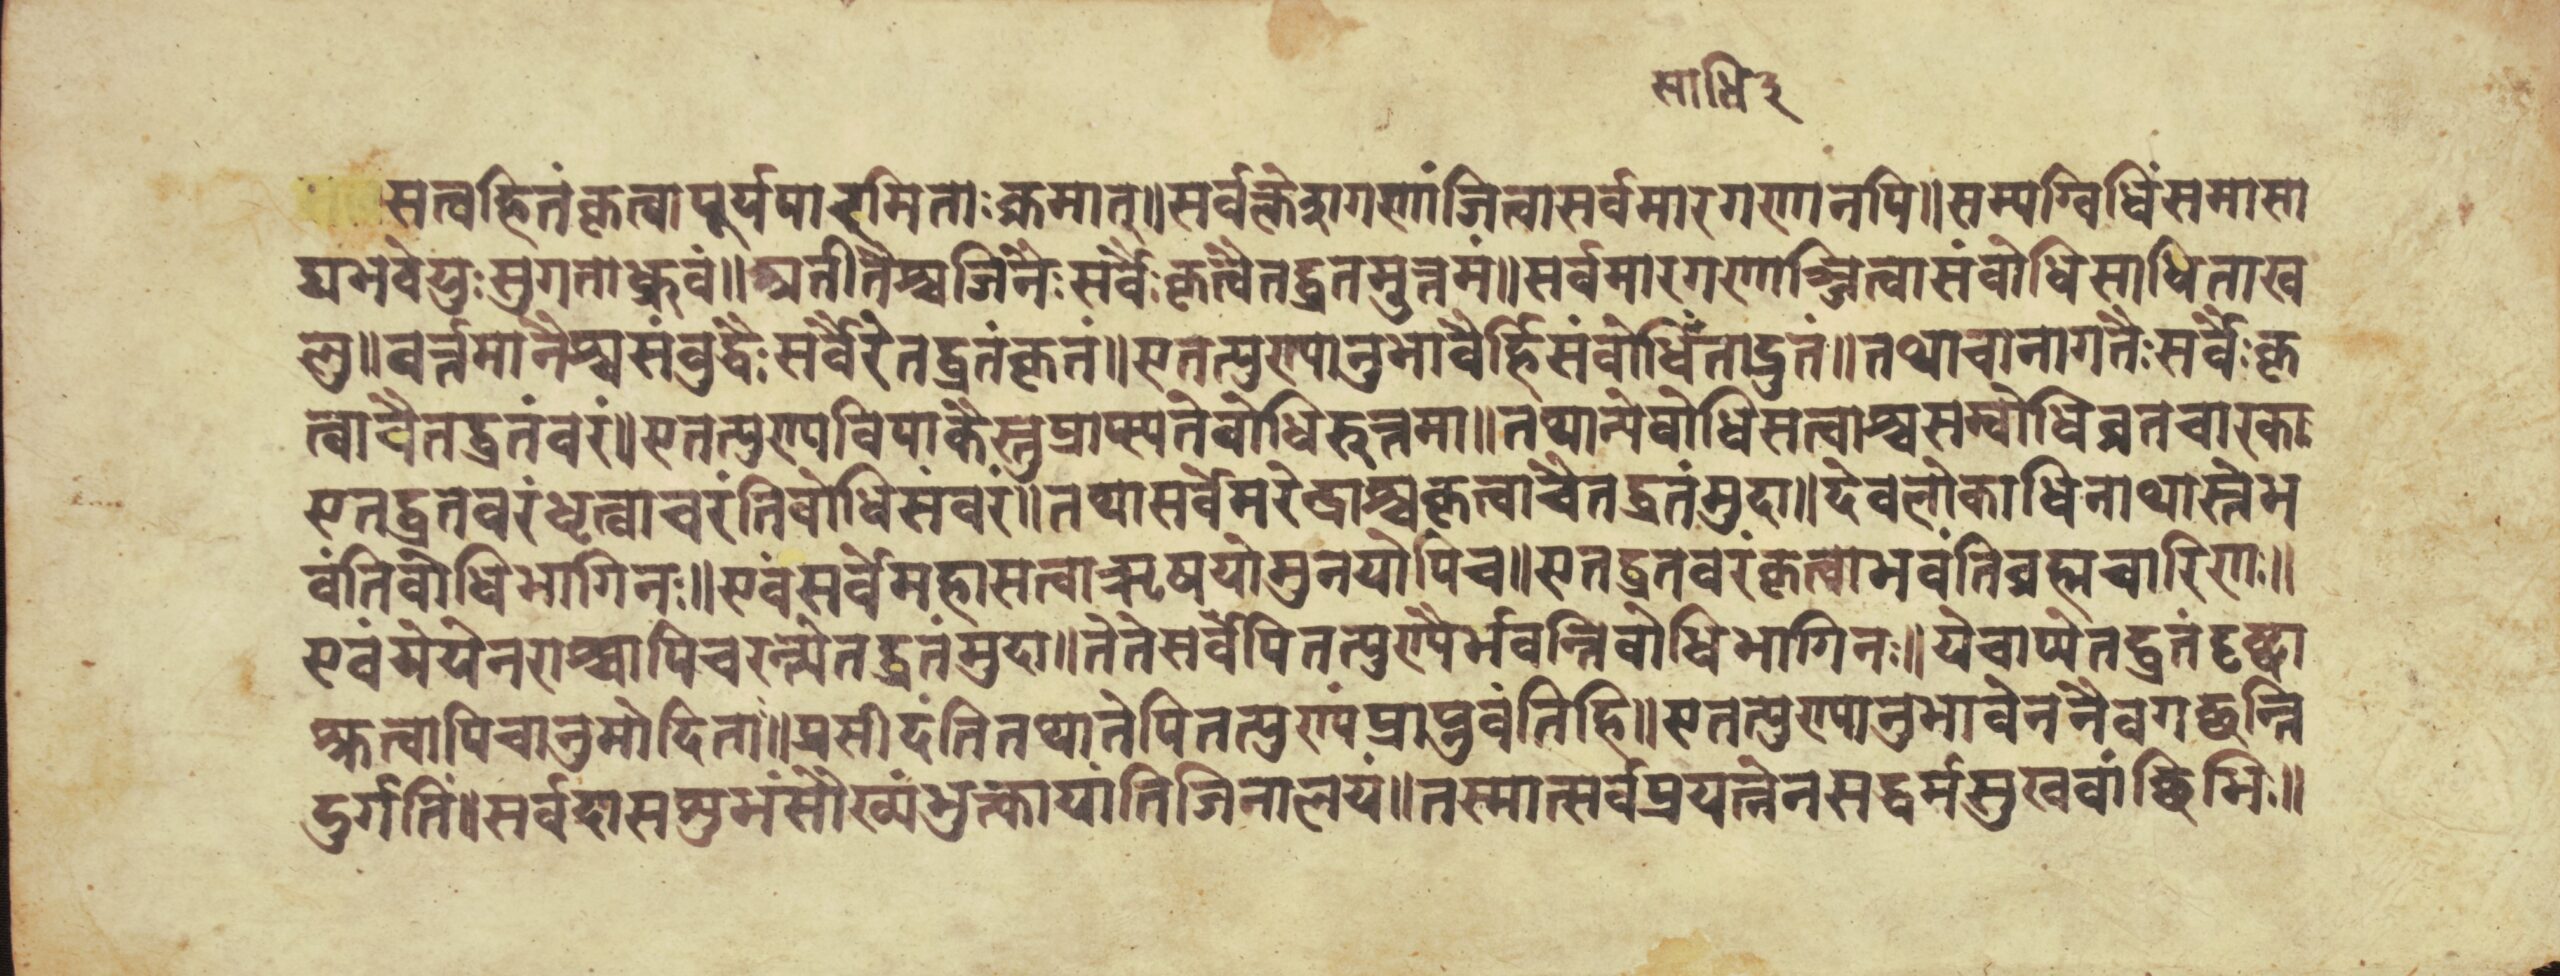 साधिदु
सत्वहितंकृत्वापूर्यपारमिताःक्रमात्॥सर्वक्लेशगणांजित्वासर्वमारगणानपि॥सम्यग्विधिंसमासा
द्यभवेयुःसुगतोध्रुवं॥अतीतैश्चजिनैःसर्वैःकृत्वैतद्व्रतमुत्तमं॥सर्वमारगणाञ्जित्वासंवोधिसाधिताख
लु॥वर्त्तमानैश्चसंवुद्धैःसर्वैरेतद्व्रतंकृतं॥एतत्पुण्यानुभावैर्हिसंवोधिंताद्रुतं॥तथाचानागतैःसर्वैःकृ
त्वाचैतद्व्रतंवरं॥एतत्पुण्यविपाकैस्तुप्राप्स्यतेवोधिरुत्तमा॥तथान्येवोधिसत्वाश्चसम्वोधिव्रतचारकाः
एतद्व्रतवरंधृत्वाचरंतिवोधिसंवरं॥तथासर्वेमरेन्द्राश्चकृत्वाचैतद्व्रतंमुदा॥देवलोकाधिनाथास्तेभ
वंतिवोधिभागिनः॥एवंसर्वेमहासत्वाऋषयोमुनयोपिच॥एतद्व्रतवरंकृत्वाभवंतिव्रह्मचारिणः॥
एवंयेयेनराश्चापिचरन्त्येतद्व्रतंमुदा॥तेतेसर्वेपितत्पुण्यैर्भवन्तिवोधिभागिनः॥येचाप्येतद्व्रतंदृष्ट्वा
श्रुत्वापिचानुमोदिताः॥प्रसीदंतितथातेपितत्पुण्यंप्राप्नुवंतिहि॥एतत्पुण्यानुभावेननैवगच्छन्ति
दुर्गतिं॥सर्वदासशुभंसौख्यंभुक्त्वायांतिजिनालयं॥तस्मात्सर्वप्रयत्नेनसद्धर्मसुखवांछिभिः॥